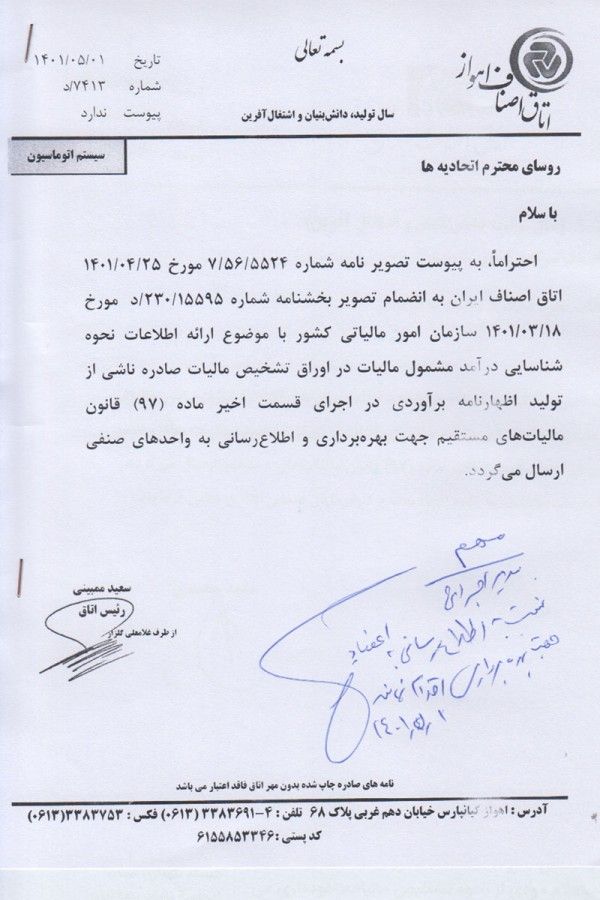 بسمه تعالی
اتاق اصناف اهواز
تاریخ ۱۴۰۱/۰۵/۰۱
شماره ۷۴۱۳/د
پیوست ندارد
سال تولید، دانش‌بنیان و اشتغال‌آفرین
سیستم اتوماسیون
روسای محترم اتحادیه ها
با سلام
احتراماً، به پیوست تصویر نامه شماره ۷/۵۶/۵۵۲۴ مورخ ۱۴۰۱/۰۴/۲۵
اتاق اصناف ایران به انضمام تصویر بخشنامه شماره ۲۳۰/۱۵۵۹۵/د مورخ
۱۴۰۱/۰۳/۱۸ سازمان امور مالیاتی کشور با موضوع ارائه اطلاعات نحوه
شناسایی درآمد مشمول مالیات در اوراق تشخیص مالیات صادره ناشی از
تولید اظهارنامه برآوردی در اجرای قسمت اخیر ماده (۹۷) قانون
مالیات‌های مستقیم جهت بهره‌برداری و اطلاع‌رسانی به واحدهای صنفی
ارسال می‌گردد.
مهم
مدیر اجرایی
نسبت به اطلاع رسانی به اعضا
جهت بهره برداری اقدام نمائید
سعید ممبینی
رئیس اتاق
از طرف غلامعلی گلزار
نامه های صادره چاپ شده بدون مهر اتاق فاقد اعتبار می باشد
آدرس : اهواز کیانپارس خیابان دهم غربی پلاک ۶۸ تلفن : ۴-۳۳۸۳۶۹۱ (۰۶۱۳) فکس : ۳۳۸۳۷۵۳(۰۶۱۳)
کد پستی : ۶۱۵۵۸۵۳۳۴۶